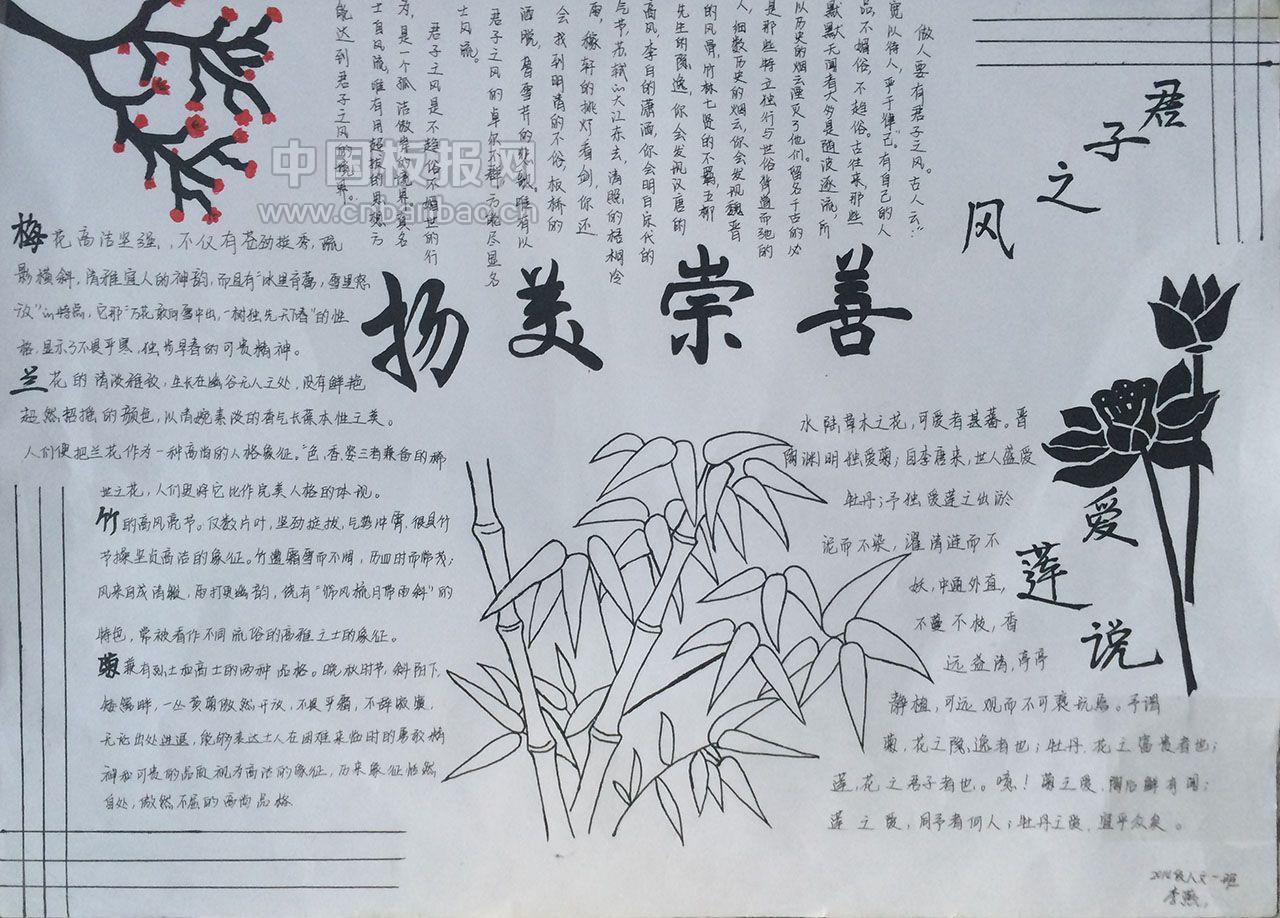 君子之风
做人要有君子之风。古人云:"
宽以待人,严于律己。"有自己的人
品,不媚俗,不趋俗。古往来,那些
默默无闻者大多是随波逐流,所
以历史的烟云湮灭了他们。留名千古的必
是那些特立独行与世俗背道而驰的
人,细数历史的烟云,你会发现魏晋
的风骨,竹林七贤的不羁,五柳
先生的隐逸,你会发现汉唐的
高风,李白的潇洒,你会明白宋代的
气节,苏轼的大江东去,清照的梧桐冷
雨,稼轩的挑灯看剑,你还
会找到明清的不俗,板桥的
洒脱,曹雪芹的
君子之风的卓尔不群方能尽显名
士风流。
君子之风是不趋俗不媚世的行
为,是一个孤洁傲岸的境界。真名
士自风流,唯有用超拔的思想方
能达到君子之风的境界。
中国板报网
www.cnbanbao.cn
扬美崇善
梅花高洁坚强,不仅有苍劲挺秀,疏
影横斜,清雅宜人的神韵,而且有"冰里育蕾,雪里怒
放"的特点,它那"万花敢向雪中出,一树独先天下春"的性
格,显示了不畏严寒,独步早春的可贵精神。
兰花的清淡雅致,生长在幽谷无人之处,没有鲜艳
超然招摇的颜色,以清婉素淡的香气长葆本性之美。
人们便把兰花作为一种高尚的人格象征。"色,香,姿三者兼备的稀
世之花,人们更将它比作完美人格的体现。
竹的高风亮节。仅数片叶,坚劲挺拔,气势冲霄,很具竹
节操坚贞高洁的象征。竹遭霜雪而不凋,历四时而常茂;
风来自成清籁,雨打更幽韵,饶有"饰风梳月带雨斜"的
特色,常被看作不同流俗的高雅之士的象征。
菊兼有烈士和高士的两种品格。晚秋时节,斜阳下,
矮篱畔,一丛黄菊傲然开放,不畏严霜,不辞寂寞,
无论出处进退,能够表达士人在困难来临时的勇敢精
神和可贵的品质视为高洁的象征,历来象征恬然
自处,傲然不屈的高尚品格
爱莲说
水陆草木之花,可爱者甚蕃。晋
陶渊明独爱菊;自李唐来,世人盛爱
牡丹;予独爱莲之出淤
泥而不染,濯清涟而不
妖,中通外直,
不蔓不枝,香
远益清,亭亭
静植,可远观而不可亵玩焉。予谓
菊,花之隐逸者也;牡丹,花之富贵者也;
莲,花之君子者也。噫!菊之爱,陶后鲜有闻;
莲之爱,同予者何人;牡丹之爱,宜乎众矣。